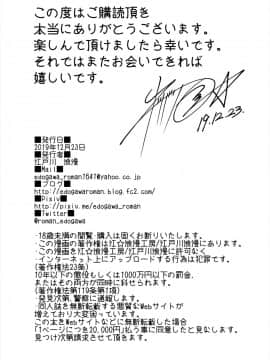 この度はご購読頂き
太当にありがとうございます。
楽しんで頂けましたら幸いです。
それではまたお会いできれば
嬉しいです。
19.12.23.
■発行日■
2019年12月23日
■発行者■
江戸川 浪漫
■Mail■
edogawa_roman1641@yahoo.co.jp
■ブログ■
http://edogawaroman.blog.fc2.com/
■Pixiv■
http://pixiv.me/edogawa_roman
■Twitter■
@roman_edogawa
・18歳未満の閲覧・購入は固くお断りいたします。
・この漫画の著作権は江☆浪漫工房/江戸川浪漫にあります。
・この漫画を江☆浪漫工房/江戸川浪漫に許可なく
インターネット上にアップロードする行為は犯罪です。
(著作権法23条)
10年以下の懲役もしくは1000万円以下の罰金、
またはその両方が同時に科せられます。
(著作権法第119条第1項)
・発見次第、警察に通報します。
・同人誌を無断転載する悪質なWebサイトが
増えており大変困っています。
このたWebサイトなどに無断転載した場合
「1ページにつき20,000円」払う事に同意したと見なします。
見つけ次第請求させて頂きます。